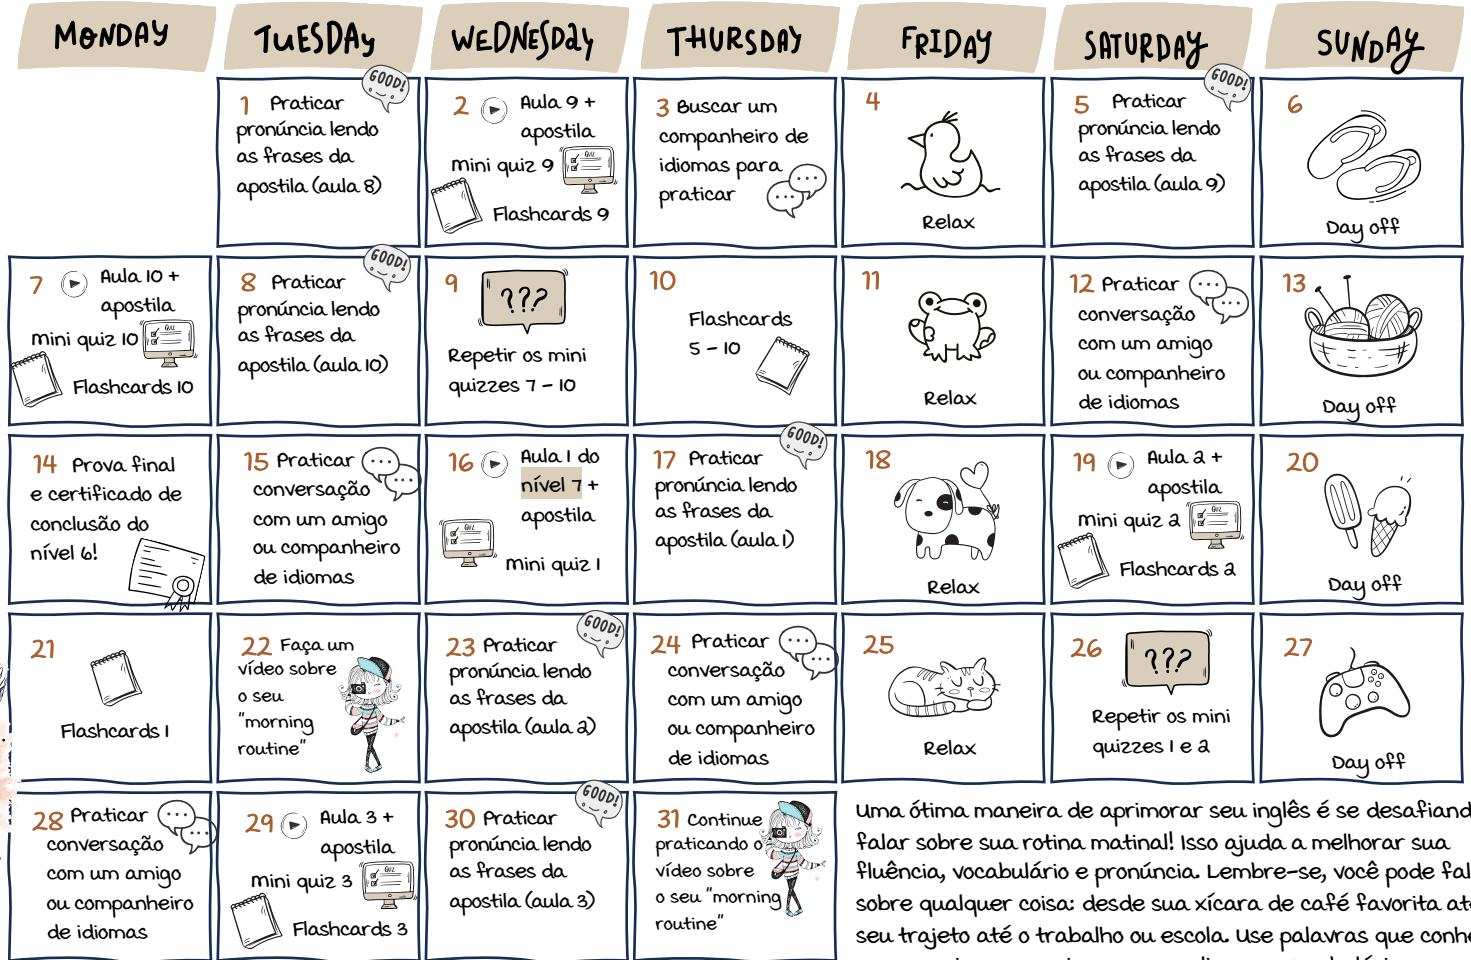 MONDAY
TUESDAY
WEDNESDAY
THURSDAY
FRIDAY
SATURDAY
SUNDAY
1 Praticar
pronúncia lendo
as frases da
apostila (aula 8)
GOOD!
2 Aula 9 +
apostila
mini quiz 9
QUIZ
Flashcards 9
3 Buscar um
companheiro de
idiomas para
praticar
4
Relax
5 Praticar
pronúncia lendo
as frases da
apostila (aula 9)
GOOD!
6
Day off
7 Aula 10 +
apostila
mini quiz 10
QUIZ
Flashcards 10
8 Praticar
pronúncia lendo
as frases da
apostila (aula 10)
GOOD!
9
???
Repetir os mini
quizzes 7 - 10
10
Flashcards
5 - 10
11
Relax
12 Praticar
conversação
com um amigo
ou companheiro
de idiomas
13
Day off
14 Prova final
e certificado de
conclusão do
nível 6!
15 Praticar
conversação
com um amigo
ou companheiro
de idiomas
16 Aula 1 do
nível 7 +
apostila
QUIZ
mini quiz 1
17 Praticar
pronúncia lendo
as frases da
apostila (aula 1)
GOOD!
18
Relax
19 Aula 2 +
apostila
mini quiz 2
QUIZ
Flashcards 2
20
Day off
21
Flashcards 1
22 Faça um
vídeo sobre
o seu
"morning
routine"
23 Praticar
pronúncia lendo
as frases da
apostila (aula 2)
GOOD!
24 Praticar
conversação
com um amigo
ou companheiro
de idiomas
25
Relax
26
???
Repetir os mini
quizzes 1 e 2
27
Day off
28 Praticar
conversação
com um amigo
ou companheiro
de idiomas
29 Aula 3 +
apostila
mini quiz 3
QUIZ
Flashcards 3
30 Praticar
pronúncia lendo
as frases da
apostila (aula 3)
GOOD!
31 Continue
praticando o
vídeo sobre
o seu "morning
routine"
Uma ótima maneira de aprimorar seu inglês é se desafiand
falar sobre sua rotina matinal! Isso ajuda a melhorar sua
fluência, vocabulário e pronúncia. Lembre-se, você pode fal
sobre qualquer coisa: desde sua xícara de café favorita at
seu trajeto até o trabalho ou escola. Use palavras que conhe